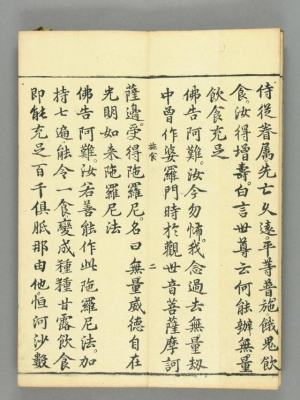 侍從眷属先亡久遠平等普施餓鬼飲
食汝得增壽。白言世尊云何能辦無量
飲食充足
佛告阿難。汝今勿怖。我念過去無量劫
中曽作婆羅門時於觀世音菩薩摩訶
施食
二
薩邊。受得陁羅尼。名曰無量威德自在
光明如来陁羅尼法
佛告阿難。汝若善能作此陁羅尼法。加
持七遍能令一食變成種種甘露飲食
即能充足百千俱胝那由他恒河沙數